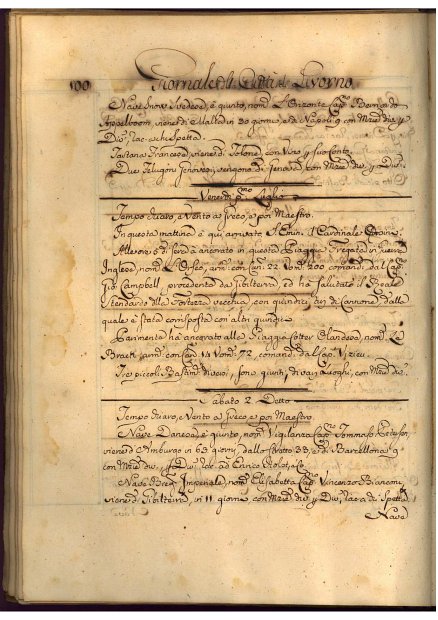 100 Giornale della Città di Livorno
Nave Snow Svedese, è giunto, nom. L'Orizonte Cap. Bernardo
di Malta in 30 giorni, e da Napoli 9 con Merc. die. p.
Div. rac. a chi Spetta.
Tartana Francese, viene di Tolone, con Vino p. suo conto.
Due Felugoni Genovesi, vengono di Genova, con Merc. die. p. Div.
Venerdi p.mo Luglio
Tempo chiaro, e Vento a Greco, e poi Maestro.
In questa mattina è qui arrivato, l'Emin. Cardinale Corsini.
Allevore 6 di sera à ancorato in questa Spiaggia Fregata in Guerra
Inglese, nom. L'Orfeo, arm. con Can. 22. Vom. 200 comand. dal Cap.
Gio. Campbell, procedente da Gibilterra, ed hà salutato il Reale
Stendardo della Fortezza vecchia, con quindici tiri di Cannone, dalla
quale è stata corrisposta con altri quindici.
Parimenta hà ancorato alla Spiaggia Cotter Olandese, nom. Le
Brack, arm. con Can. 14 Vom. 72, comand. dal Cap.
Tre piccoli Bastim. diversi, sono giunti, di vari Luoghi, con Merc. die.
Sabato 2. Detto
Tempo chiaro, e Vento a Greco, e poi Maestro.
Nave Danese, è giunto, nom. Vigilanza Cap. Tommaso
viene d'Amburgo in 63 giorni, dallo stretto 33, e di Barcellona 9
con Merc. die. p. Div. rac. ad Enrico
Nave Brig. Imperiale, nom. Elisabetta Cap. Vincenzo Bianconi,
viene di Gibilterra, in 11 giorni con Merc. die. p. Div. rac. a chi Spetta
Nave